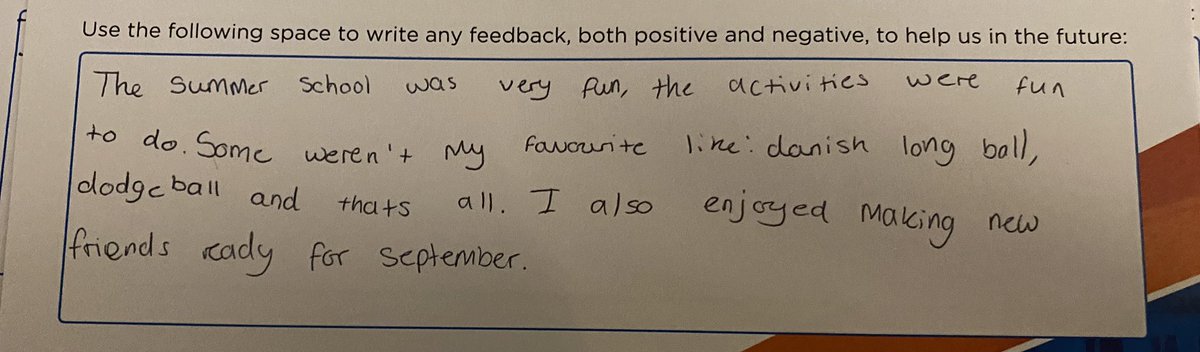 Use the following space to write any feedback, both positive and negative, to help us in the future:
The Summer School was very fun, the activities were fun
to do. Some weren't My favourite like: danish long ball,
dodgeball and thats all. I also enjoyed Making new
friends ready for September.